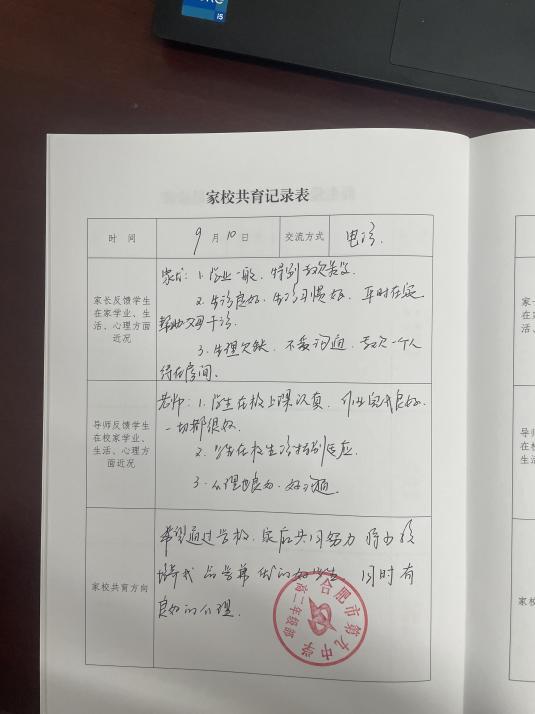 i5
家校共育记录表
时 间
9月10日
交流方式
电话.
家长反馈学生
在家学业、生
活、心理方面
近况
家长: 1. 学业一般, 特别喜欢数学
2. 生活良好, 生活习惯好, 平时在家
帮助父母干活.
3. 生理欠缺, 不爱沟通, 喜欢一个人
待在房间.
导师反馈学生
在校家学业、
生活、心理方
面近况
老师: 1. 学生在校上课认真, 作业完成良好.
一切都很好.
2. 学生在校生活特别适应.
3. 心理也良好, 好沟通.
家校共育方向
希望通过学校, 家庭共同努力 将
培养成 品学兼优的好学生, 同时有
良好的心理.
合肥市第九中学
高二年级部
家
在
导师
在校
生活
家校